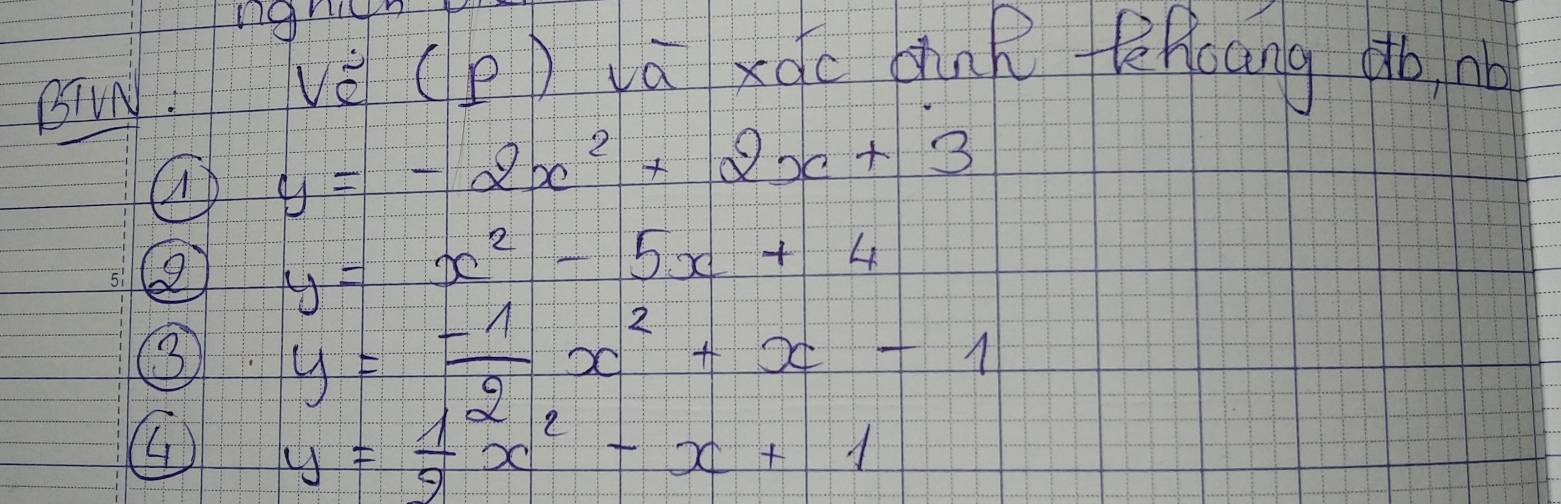 BTVN: Vẽ (P) và xác định khoảng đb, nb
① y = - 2x² + 2x + 3
5 ② y = x² - 5x + 4
③ y = -1/2 x² + x - 1
④ y = 1/2 x² - x + 1